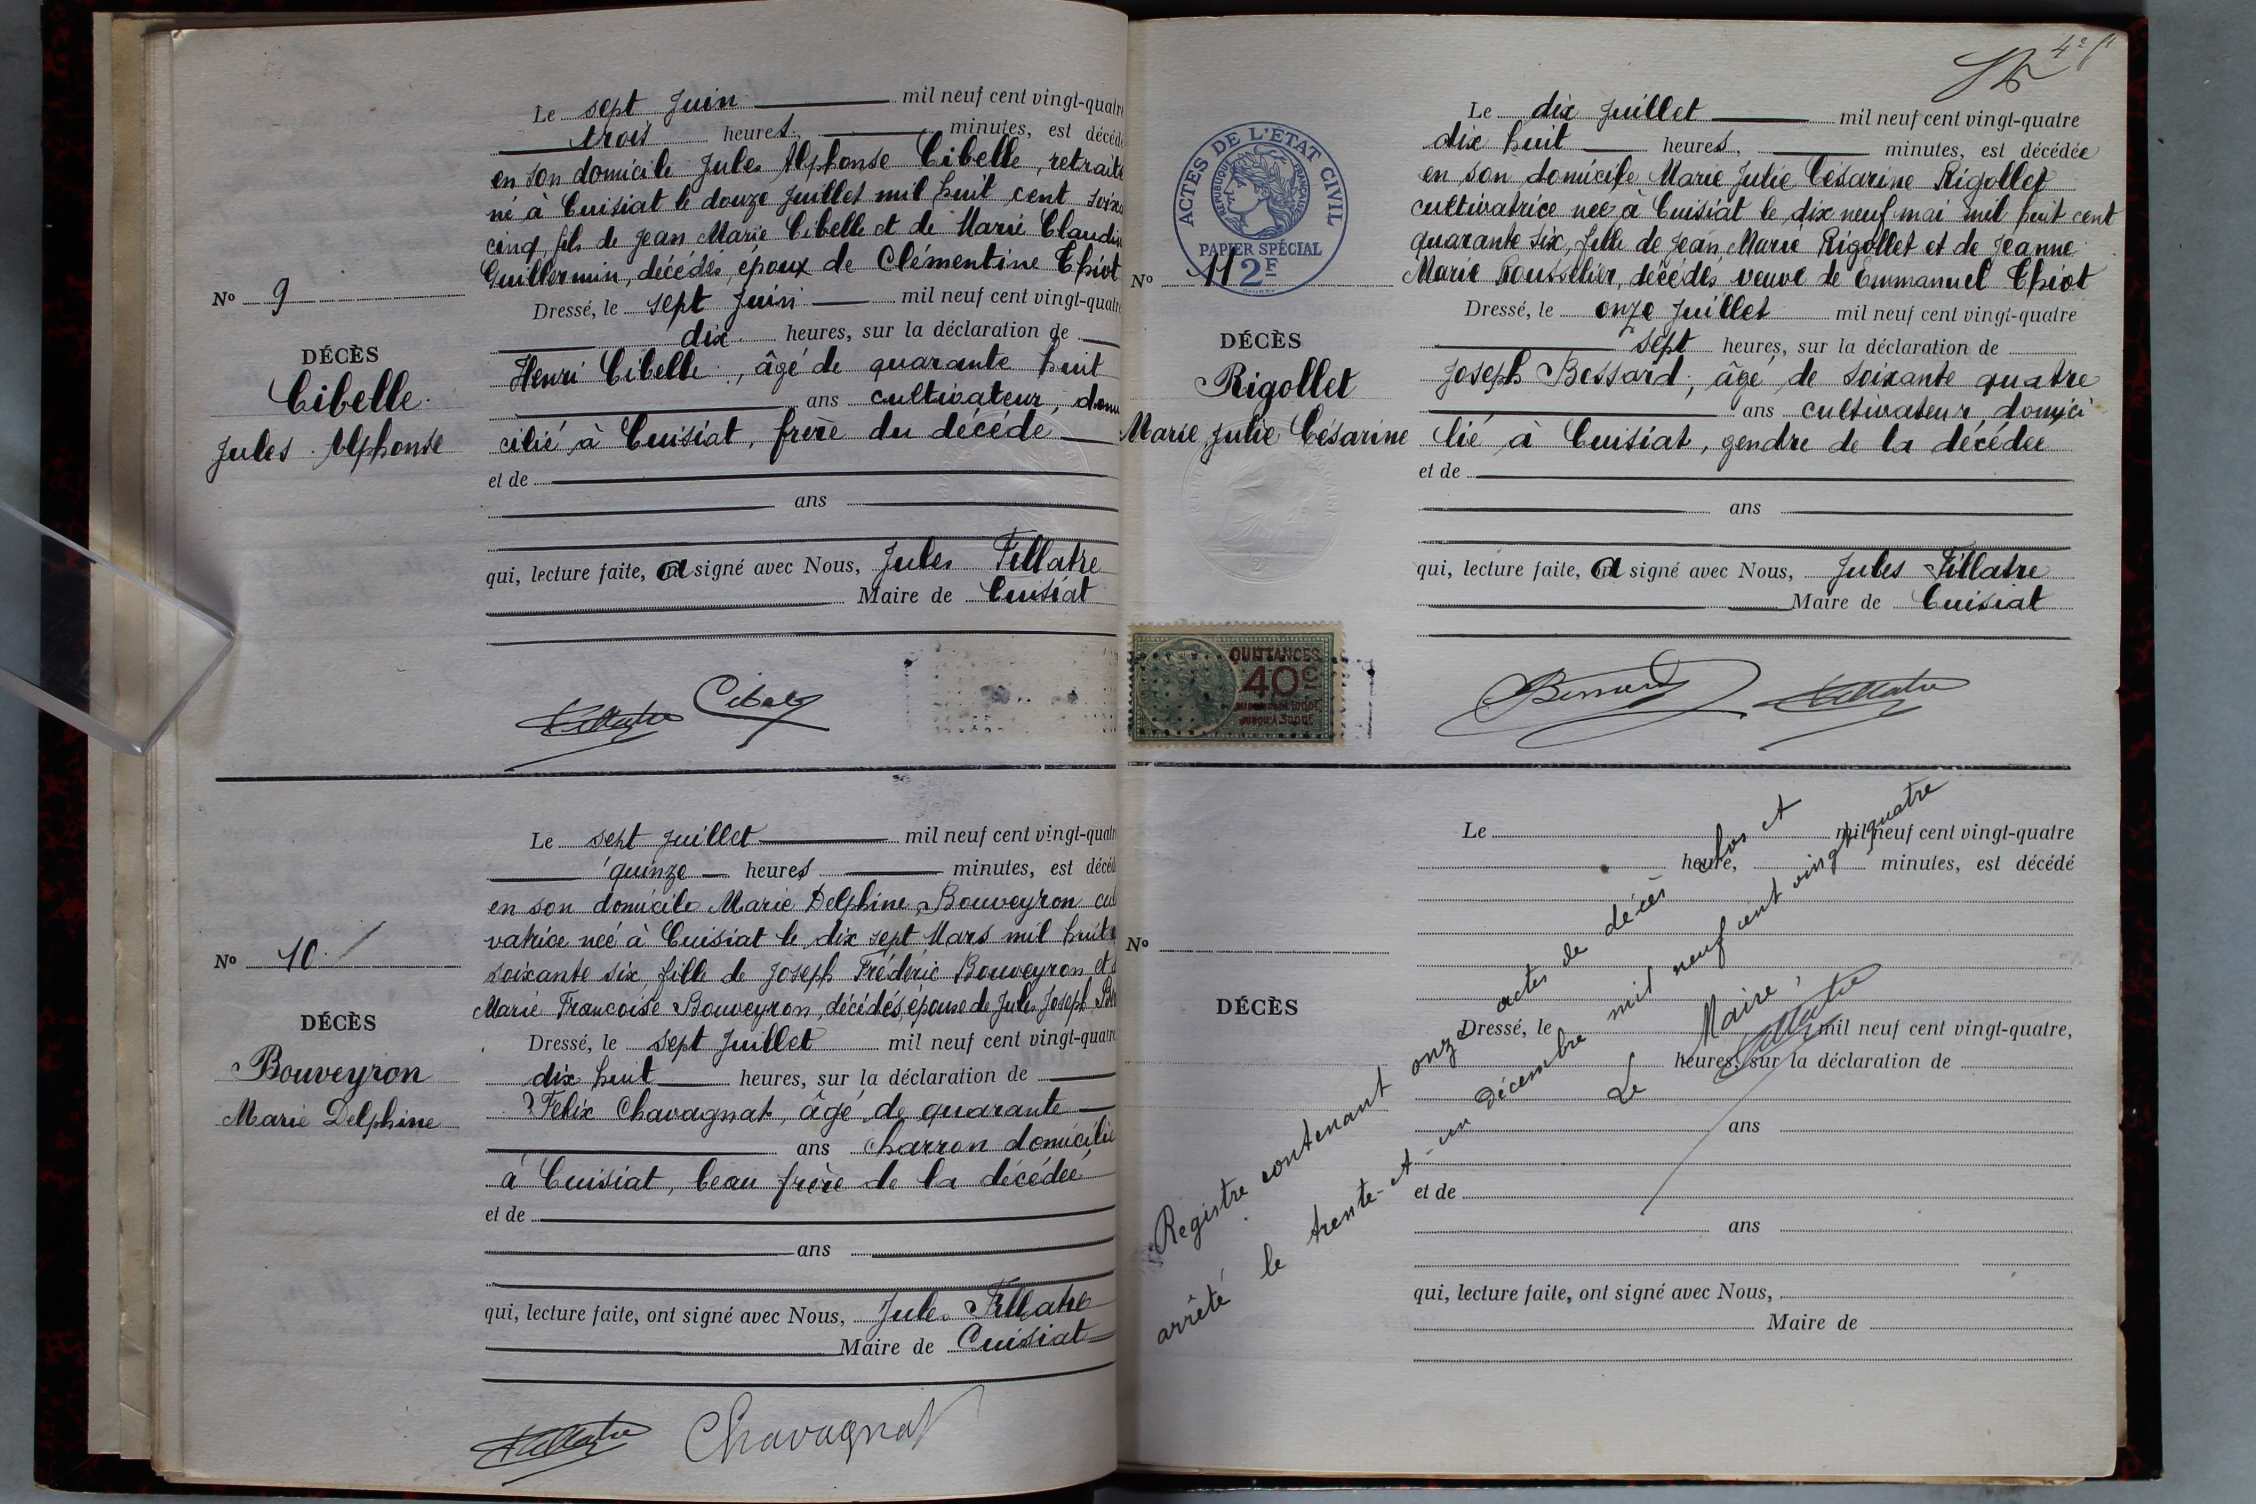 Le sept Juin mil neuf cent vingt-quatre
trois heures, minutes, est décédé
en son domicile Jules Alphonse Cibelle, retraité
né à Cuisiat le douze Juillet mil huit cent soixa
cinq, fils de Jean Marie Cibelle et de Marie Claudin
Guillermin, décédés, époux de Clémentine Thiot
Nº 9
Dressé, le sept Juin mil neuf cent vingt-quatre
dix heures, sur la déclaration de
DÉCÈS
Cibelle
Jules Alphonse
Henri Cibelle, âgé de quarante huit
ans cultivateur, domi
cilié à Cuisiat, frère du décédé
et de
ans
qui, lecture faite, a signé avec Nous, Jules Fillatre
Maire de Cuisiat
Fillatre Cibelle
Le sept Juillet mil neuf cent vingt-quatre
quinze heures minutes, est décédé
en son domicile Marie Delphine Bouveyron cul
vatrice née à Cuisiat le dix sept Mars mil huit
soixante six fille de Joseph Frédéric Bouveyron et
Marie Françoise Bouveyron, décédés, épouse de Jules Joseph
Nº 10
Dressé, le sept Juillet mil neuf cent vingt-quatre
dix huit heures, sur la déclaration de
DÉCÈS
Bouveyron
Marie Delphine
Félix Chavagnat, âgé de quarante
ans charron domicilié
à Cuisiat, beau frère de la décédée
et de
ans
qui, lecture faite, ont signé avec Nous, Jules Fillatre
Maire de Cuisiat
Fillatre Chavagnat
4e
Le dix Juillet mil neuf cent vingt-quatre
dix huit heures, minutes, est décédée
en son domicile Marie Julie Césarine Rigollet
cultivatrice née à Cuisiat le dix neuf mai mil huit cent
quarante six, fille de Jean Marie Rigollet et de Jeanne
Marie Rousselier, décédés veuve de Emmanuel Thiot
ACTES DE L'ETAT CIVIL
REPUBLIQUE FRANÇAISE
PAPIER SPÉCIAL
2F
Nº 11
Dressé, le onze Juillet mil neuf cent vingt-quatre
sept heures, sur la déclaration de
DÉCÈS
Rigollet
Marie Julie Césarine
Joseph Bessard, âgé de soixante quatre
ans cultivateur domici
lié à Cuisiat, gendre de la décédée
et de
ans
qui, lecture faite, a signé avec Nous, Jules Fillatre
Maire de Cuisiat
QUITTANCES
40c
Fillatre
Le mil neuf cent vingt-quatre
heure, minutes, est décédé
Nº
DÉCÈS
Dressé, le mil neuf cent vingt-quatre,
heures, sur la déclaration de
ans
et de
ans
qui, lecture faite, ont signé avec Nous,
Maire de
Registre contenant onze actes de décès clos et
arrêté le trente-et-un décembre mil neuf cent vingt quatre
Le Maire,
Fillatre